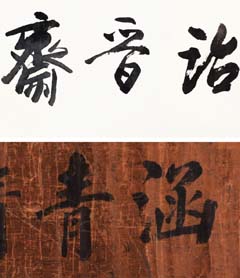 詒晉齋
涵青